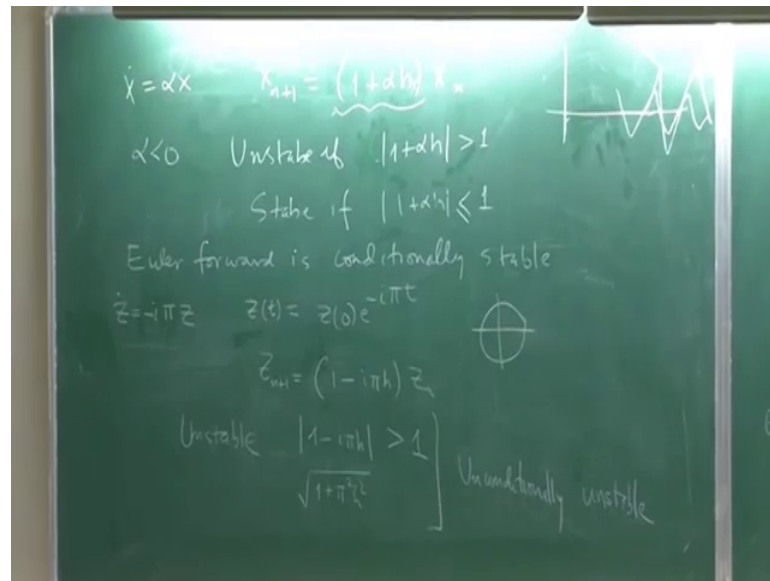 ẋ = αx   x_{n+1} = (1+αh) x_n
α<0   Unstabe if |1+αh| > 1
Stabe if |1+αh| ≤ 1
Euler forward is conditionally stable
ż = -iπz   z(t) = z(0)e^{-iπt}
z_{n+1} = (1-iπh) z_n
Unstable |1-iπh| > 1
√(1+π²h²)
Unconditionally unstable